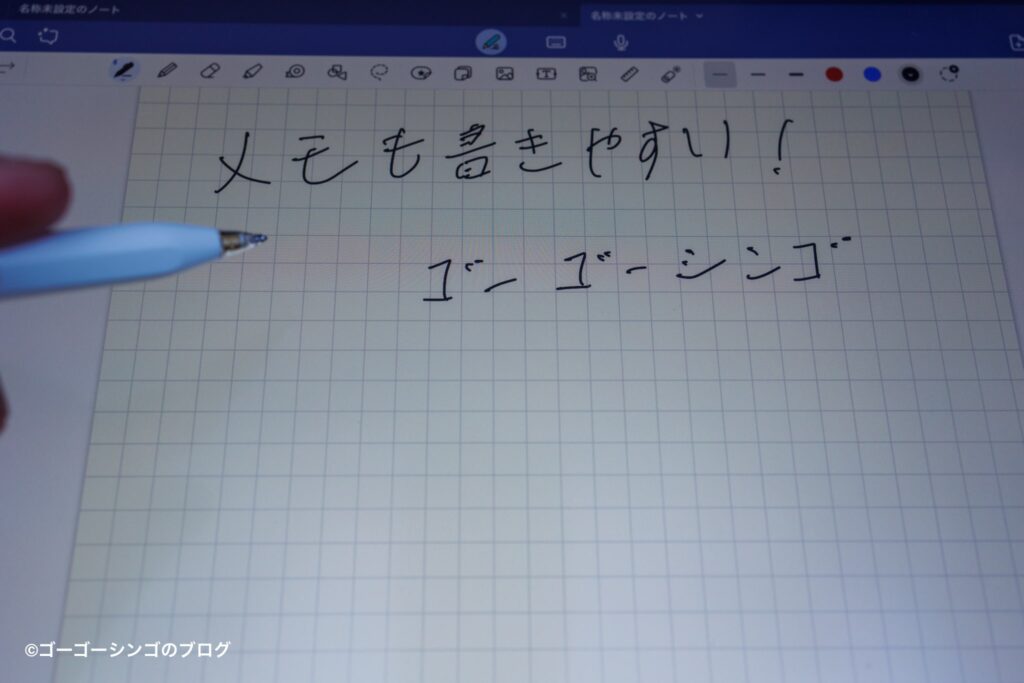 名称未設定のノート
名称未設定のノート
メモも書きやすい!
ゴーゴーシンゴ
©ゴーゴーシンゴのブログ